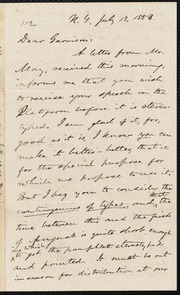 112
N. Y., July 13, 1858.
Dear Garrison:
A letter from Mr.
May, received this morning,
informs me that you wish
to revise your speech on the
Platform before it is stereo-
typed. I am glad of it, for,
good as it is, I know you can
make it better—better, that is,
for the special purpose for
which we propose to use it.
But I beg you to consider the
contingencies of types, and that the
time between this and the first
of August is quite short enough
in which to get the pamphlet stereotyped
and printed. It must be out
in season for distribution at our